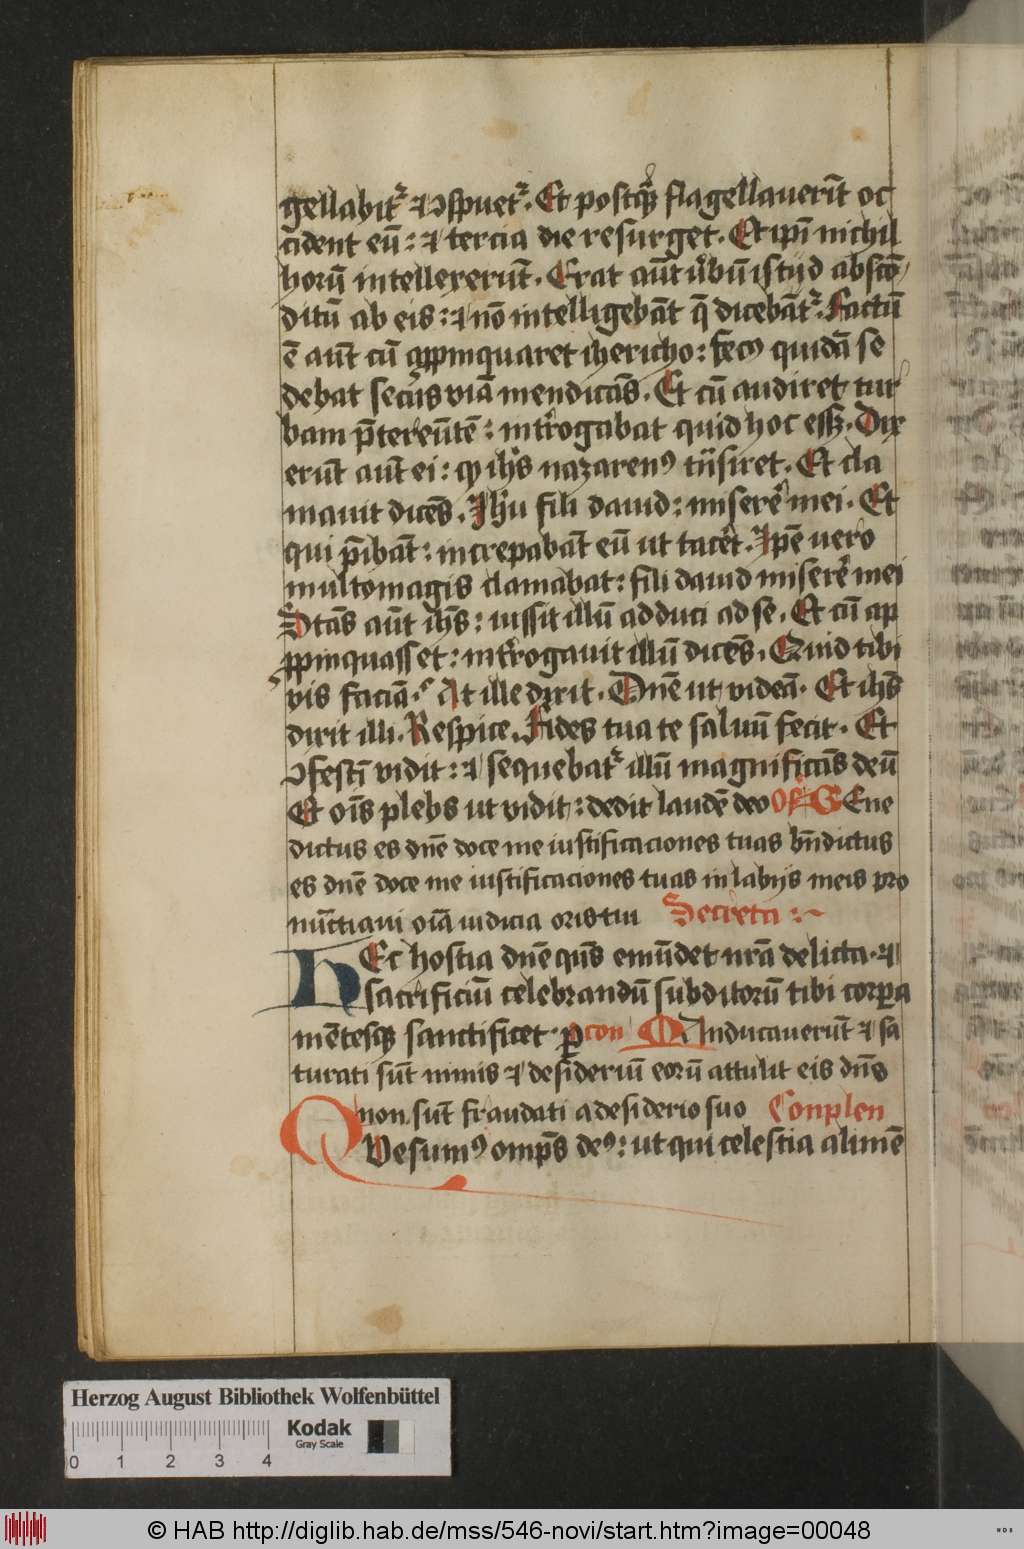 gellabit᷑ ⁊ ↄspuet᷑. Et postq̃ꝫ flagellauerūt oc
cident eū: ⁊ tercia die resurget. Et ipi̅ nichil
horū intellexerūt. Erat aūt ūbū istud absco̅
ditū ab eis: ⁊ no̅ intelligebāt q̄ dicebāt᷑. Factū
ē aūt cū appinquaret iherich o: secꝰ quidā se
debat secus viā mendicās. Et cū audiret tur
bam p̄tereūtē: int̓rogabat quid hoc eēꝫ. Dix
erūt aūt ei: ꝙ ih̅s nazarenꝰ tūsiret. Et cla
mauit dicēs. Jh̅u fili dauid: miserē mei. Et
qui p̄ibāt: increpabāt eū ut tacēt. Ip̄e uero
multomagis clamabat: fili dauid miserē mei
Stās aūt ih̅s: iussit illū adduci ad se. Et cū ap
ꝓpinquasset: int̓rogauit illū dicēs. Quid tibi
vis faciā? At ille dixit. Dn̄e ut videā. Et ih̅s
dixit illi. Respice. Fides tua te saluū fecit. Et
ↄfesti̅ vidit: ⁊ sequebat᷑ illū magnificās deū
Et oi̅s plebs ut vidit: dedit laudē deo Of̄ BEne
dictus es dn̄e doce me iustificaciones tuas bn̄dictus
es dn̄e doce me iustificaciones tuas in labijs meis pro
nūctiaui oi̅a iudicia oris tui Secreta:
HEc hostia dn̄e qs̄ emūdet nr̄a delicta. ⁊
sacrificiū celebrandū subditorū tibi corpora
mētesqꝫ sanctificet. ꝑ con Manducauerūt ⁊ sa
turati sūt nimis ⁊ desideriū eorū attulit eis dn̄s
non sūt fraudati a desiderio suo Conplen
QVesumꝰ omp̄s deꝰ: ut qui celestia alimē
Herzog August Bibliothek Wolfenbüttel
0 1 2 3 4 Kodak
Gray Scale
© HAB http://diglib.hab.de/mss/546-novi/start.htm?image=00048